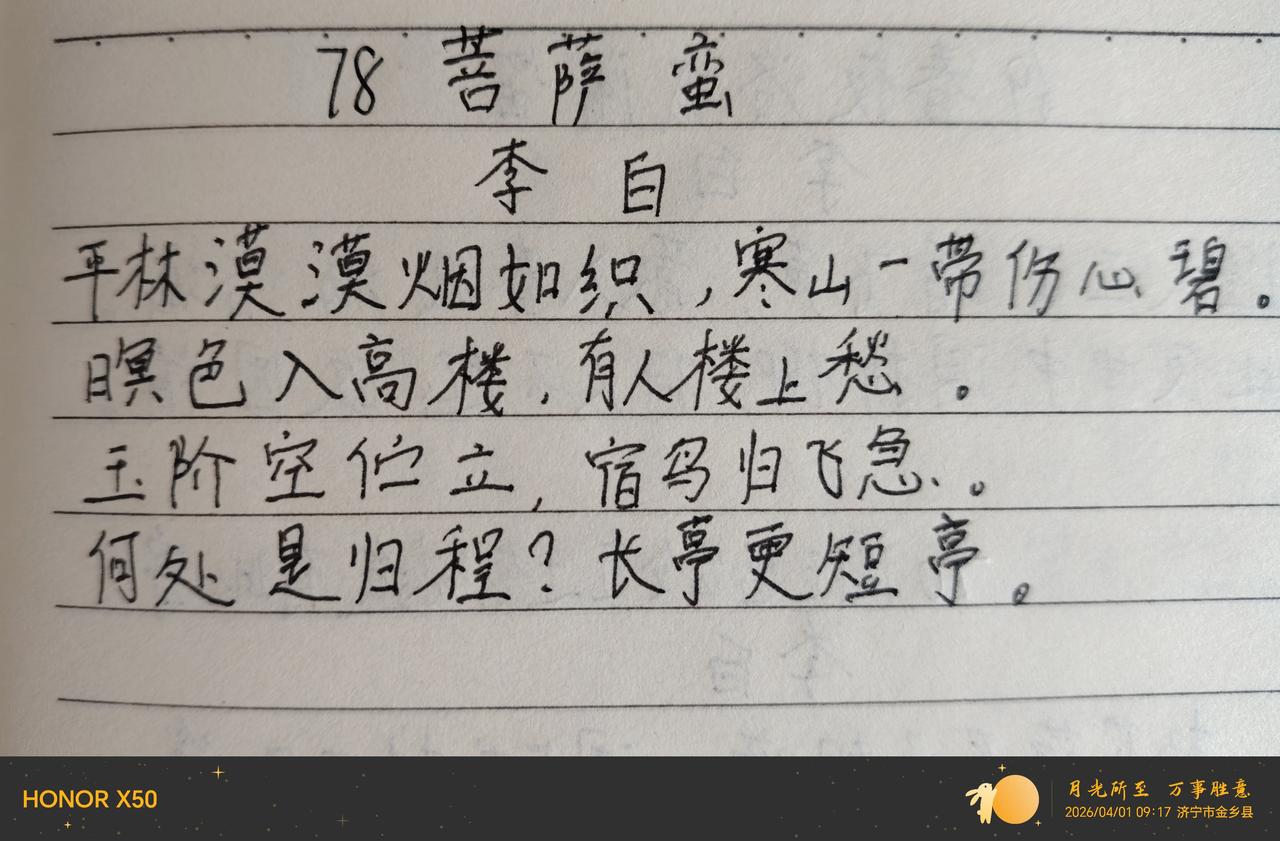 78 菩萨蛮
李白
平林漠漠烟如织,寒山一带伤心碧。
暝色入高楼,有人楼上愁。
玉阶空伫立,宿鸟归飞急。
何处是归程?长亭更短亭。
HONOR X50
月光所至 万事胜意
2026/04/01 09:17 济宁市金乡县